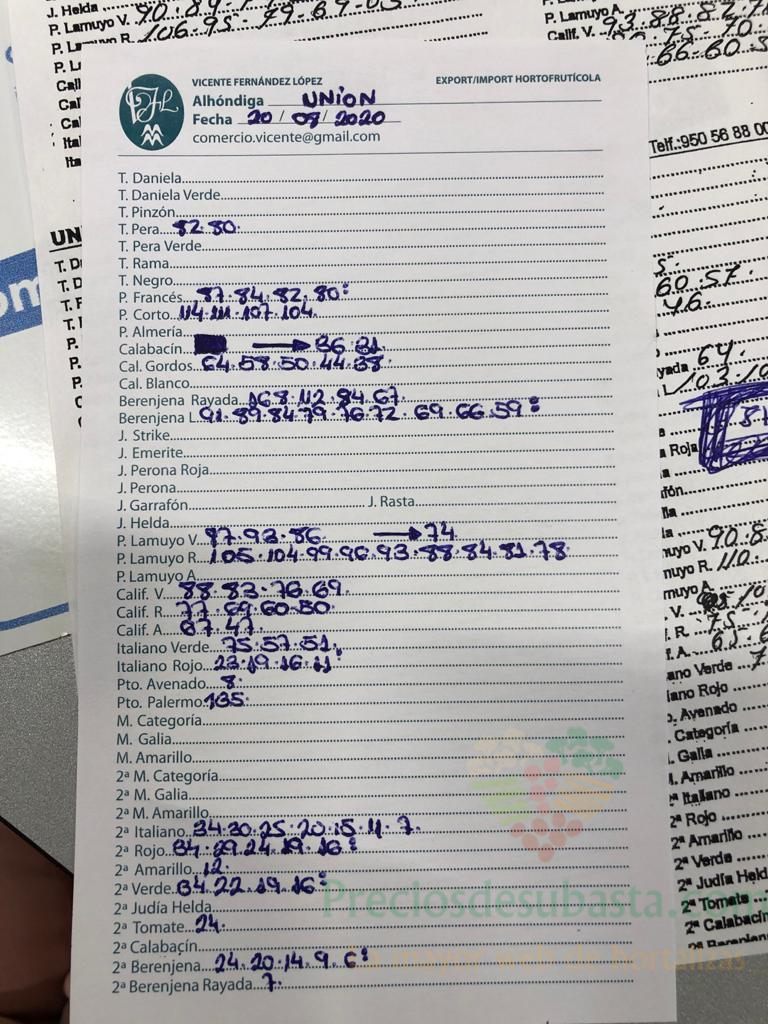 J. Helda
P. Lamuyo V.
P. Lamuyo R. 106-95-
P. Lamuyo A.
Calif. V. 93.88.82.7
66.60.5
VICENTE FERNÁNDEZ LÓPEZ EXPORT/IMPORT HORTOFRUTÍCOLA
Alhóndiga UNION
Fecha 20/08/2020
comercio.vicente@gmail.com
Telf.:950 56 88 00
T. Daniela
T. Daniela Verde
T. Pinzón
T. Pera 82.80.
T. Pera Verde
T. Rama
T. Negro
P. Francés 87.84.82.80:
P. Corto 114.111.107.104.
P. Almería
Calabacín → 36.31
Cal. Gordos 64.58.50.44.38
Cal. Blanco
Berenjena Rayada 168.112.84.67.
Berenjena L. 91.89.84.79.76.72.69.66.59:
J. Strike
J. Emerite
J. Perona Roja
J. Perona
J. Garrafón J. Rasta
J. Helda
P. Lamuyo V. 97.93.86 → 74
P. Lamuyo R. 105.104.99.96.93.88.84.81.78
P. Lamuyo A.
Calif. V. 88.83.76.69.
Calif. R. 77.69.60.50.
Calif. A. 67.47.
Italiano Verde 75.57.51.
Italiano Rojo 23.19.16.11:
Pto. Avenado 8.
Pto. Palermo 135.
M. Categoría
M. Galia
M. Amarillo
2ª M. Categoría
2ª M. Galia
2ª M. Amarillo
2ª Italiano 34.30.25.20.15.11.7.
2ª Rojo 34.29.24.19.16:
2ª Amarillo 12.
2ª Verde 34.22.19.16:
2ª Judía Helda
2ª Tomate 24.
2ª Calabacín
2ª Berenjena 24.20.14.9.6:
2ª Berenjena Rayada 7.
60.57.
46.
64.
Roja
90.8
110.
ano Verde
iano Rojo
. Avenado
. Categoría
. Galia
. Amarillo
ª Italiano
2ª Rojo
2ª Amarillo
2ª Verde
2ª Judía Held
2ª Tomate
2ª Calabacín
Preciosdesubasta.com
La mayor web de hortalizas